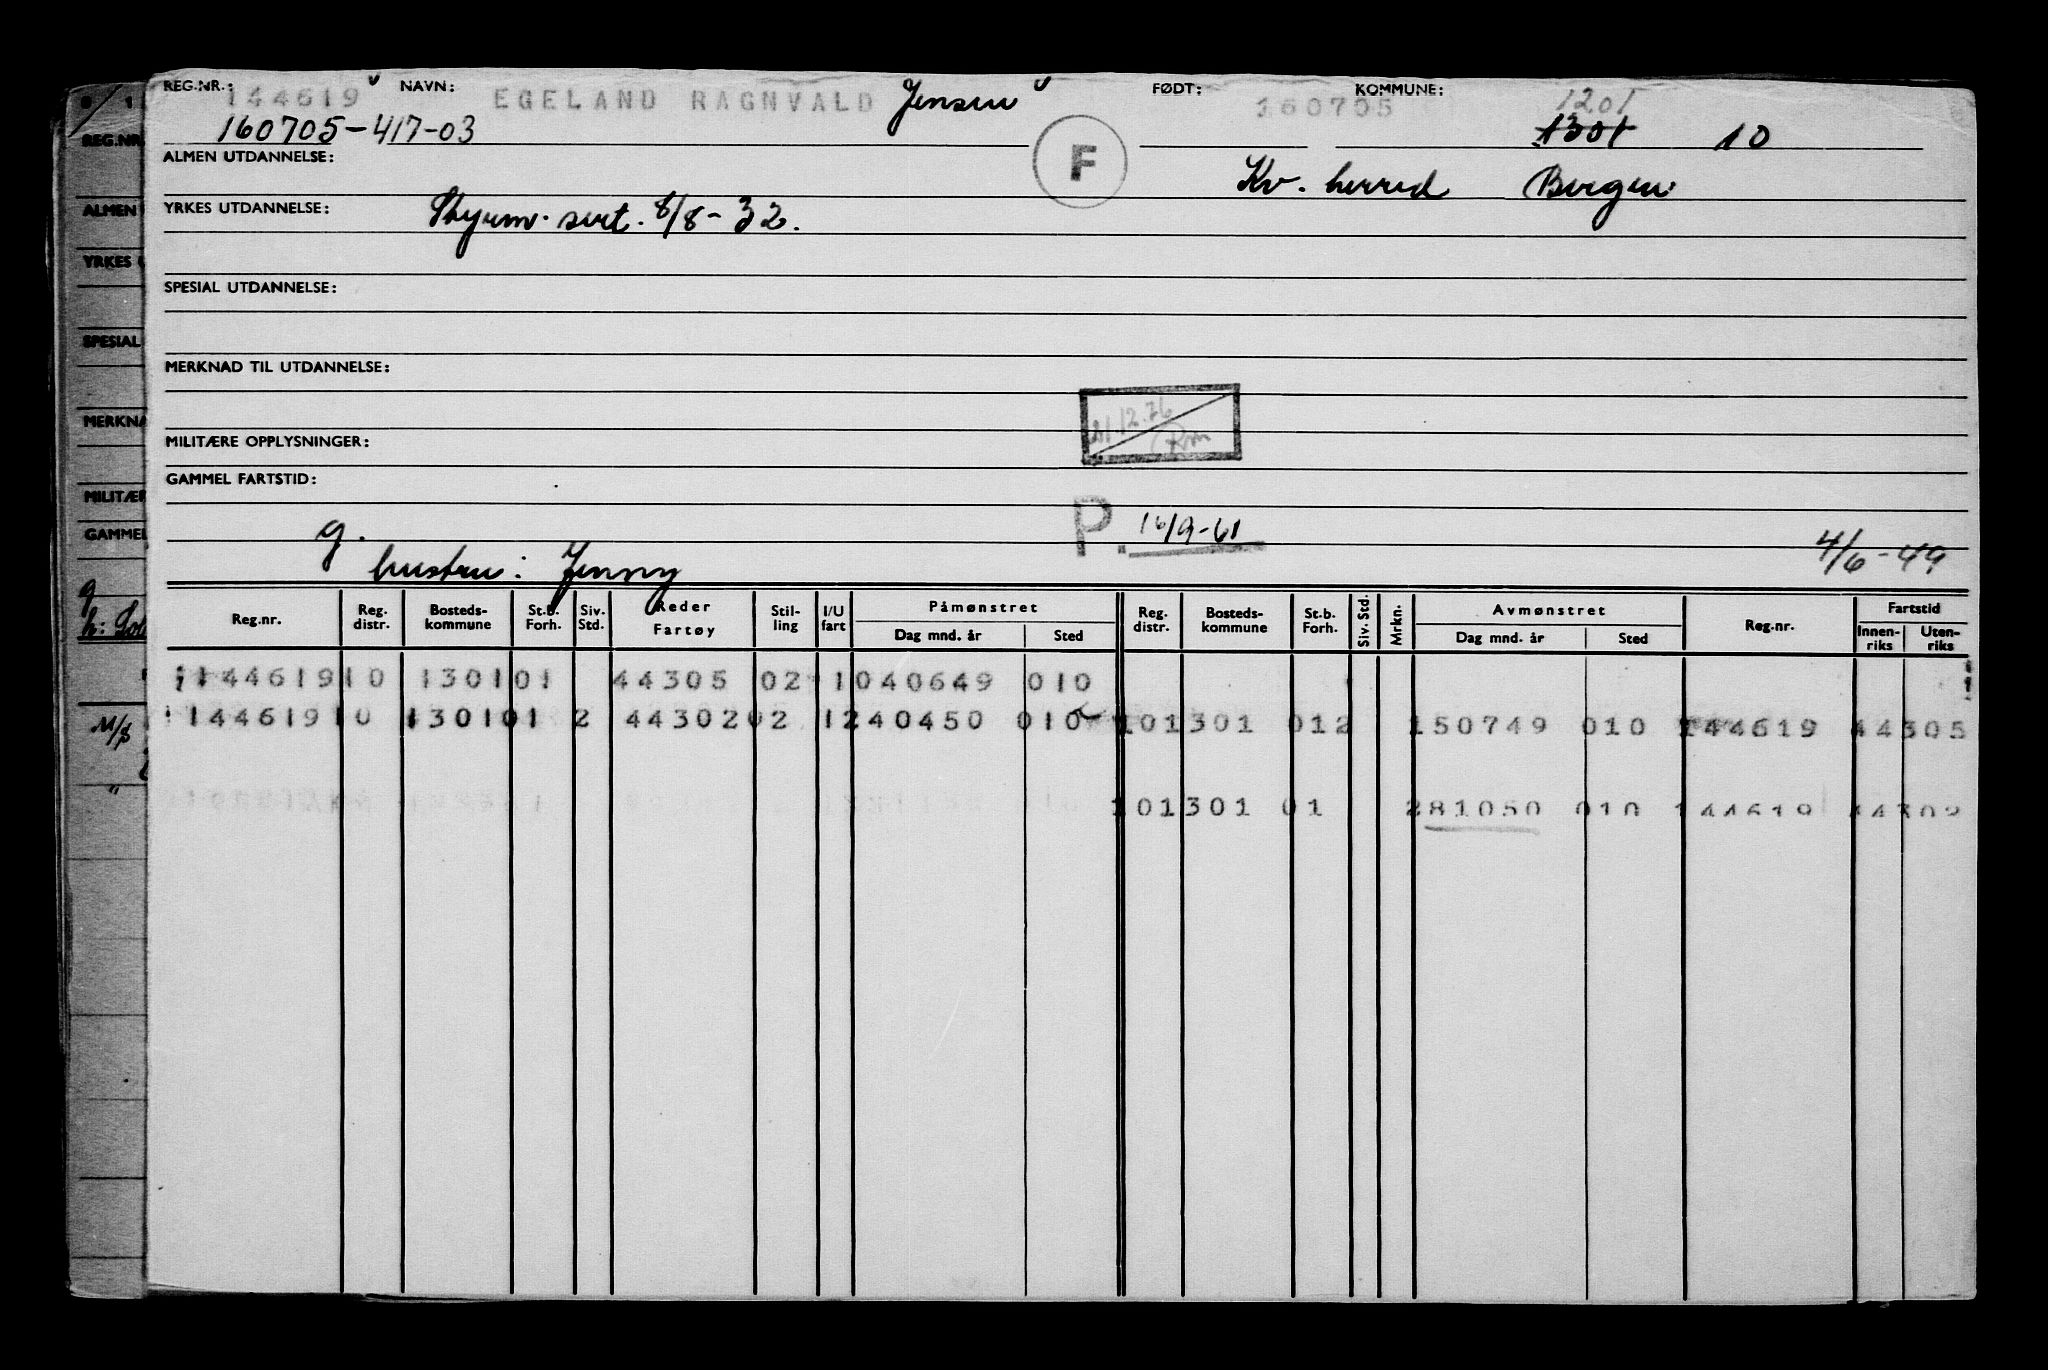 REG.NR.: 144619 NAVN: EGELAND RAGNVALD Jensen FØDT: 160705 KOMMUNE: 1201
160705-417-03 1301 10
F
ALMEN UTDANNELSE: Kv. herred Bergen
YRKES UTDANNELSE: Styrm. sert. 8/8-32.
SPESIAL UTDANNELSE:
MERKNAD TIL UTDANNELSE:
21.12.76
MILITÆRE OPPLYSNINGER:
GAMMEL FARTSTID:
P. 16/9-61
g. 4/6-49
hustru: Jenny
Reg.nr. Reg. distr. Bosteds-kommune St.b. Forh. Siv. Std. Reder Fartøy Stil-ling I/U fart Påmønstret Dag mnd. år Sted Reg. distr. Bosteds-kommune St.b. Forh. Siv. Std. Mrkn. Avmønstret Dag mnd. år Sted Reg.nr. Fartstid Innen-riks Uten-riks
144619 10 1301 01 44305 02 1 040649 010
144619 10 1301 01 2 44302 02 1 240450 010 10 1301 01 2 150749 010 144619 44305
10 1301 01 281050 010 144619 44302
REG.NR
ALMEN
YRKES
SPESIAL
MERKNA
MILITÆR
GAMMEL
g
M/S
"